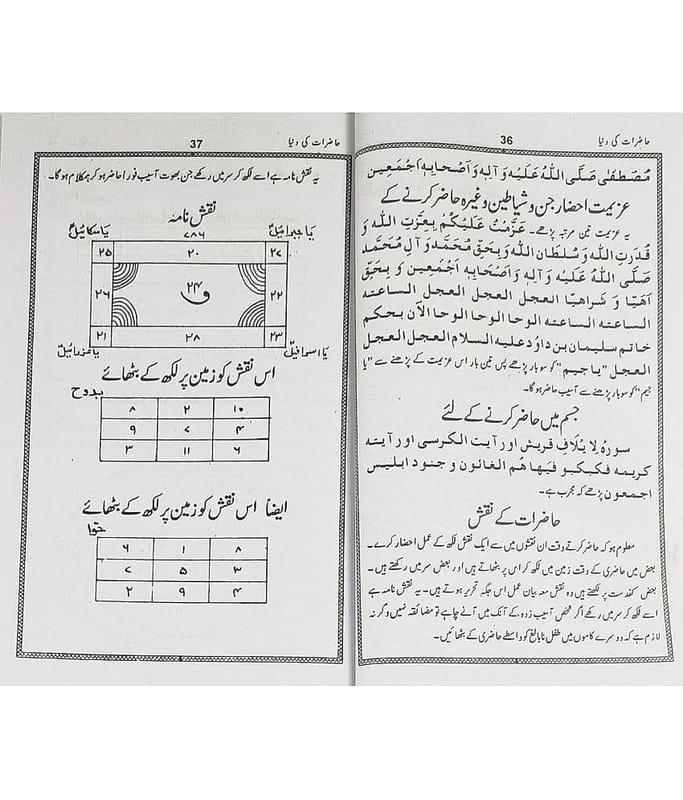 حاضرات کی دنیا
36
مُصْطَفٰی صَلَّی اللّٰہُ عَلَیْہِ وَ اٰلِہٖ وَاَصْحَابِہٖ اَجْمَعِیْن
عزیمت احضار جن و شیاطین وغیرہ حاضر کرنے کے
یہ عزیمت تین مرتبہ پڑھے۔ عَزَمْتُ عَلَیْکُمْ بِعِزَّتِ اللّٰہِ وَ
قُدرَتِ اللّٰہ وَ سُلطَان اللّٰہِ وَ بِحَقِّ مُحَمَّد وَ آلِ مُحَمَّد
صَلَّی اللّٰہُ عَلَیْہِ وَ اٰلِہٖ وَ اَصْحَابِہٖ اَجْمَعِیْن وَ بِحَقِّ
اَھَیًا وَ شَرَاھیًا العجل العجل العجل الساعتہ
الساعتہ الساعتہ الوحا الوحا الوحا الآن بحکم
خاتم سلیمان بن داود علیہ السلام العجل العجل
العجل "یا جیم" کو سو بار پڑھے پس تین بار اس عزیمت کے پڑھنے سے "یا
جیم" کو سو بار پڑھنے سے آسیب حاضر ہوگا۔
جسم میں حاضر کرنے کے لئے
سورہ لِاِیلَافِ قریش اور آیت الکرسی اور آیتہ
کریمہ فکبکبو فیھا ھُم الغائون و جنود ابلیس
اجمعون پڑھے کہ مجرب ہے۔
حاضرات کے نقش
معلوم ہو کہ حاضر کرتے وقت ان نقشوں میں سے ایک نقش لکھ کے عمل احضار کرے۔
بعض میں حاضری کے وقت زمین میں لکھ کر اس پر بٹھاتے ہیں اور بعض سر میں رکھتے ہیں۔
بعض کفدست پر لکھتے ہیں وہ نقش معہ بیان عمل اس جگہ تحریر ہوتے ہیں۔ یہ نقش نامہ ہے
اسے لکھ کر سر میں رکھے اگر شخص آسیب زدہ کے آنگ میں آنے چاہے تو مضائقہ نہیں وگرنہ
لازم ہے کہ دوسرے کاموں میں طفل نابالغ کو واسطے حاضری کے بٹھائیں۔
حاضرات کی دنیا
37
یہ نقش نامہ ہے اسے لکھ کر سر میں رکھے جن بھوت آسیب فوراً حاضر ہو کر ہمکلام ہوگا۔
نقش نامہ
۷۸۶
یا جبرائیلؑ
یا میکائیلؑ
۲۷ ۲۰ ۲۵
۲۲ ۲۴ ۲۶
ق
۲۳ ۲۸ ۲۱
یا اسرافیلؑ
یا عزرائیلؑ
اس نقش کو زمین پر لکھ کے بٹھائے
بدوح
۱۰ ۲ ۸
۴ ۷ ۹
۶ ۱۱ ۳
ایضاً اس نقش کو زمین پر لکھ کے بٹھائے
حوّا
۸ ۱ ۶
۳ ۵ ۷
۴ ۹ ۲